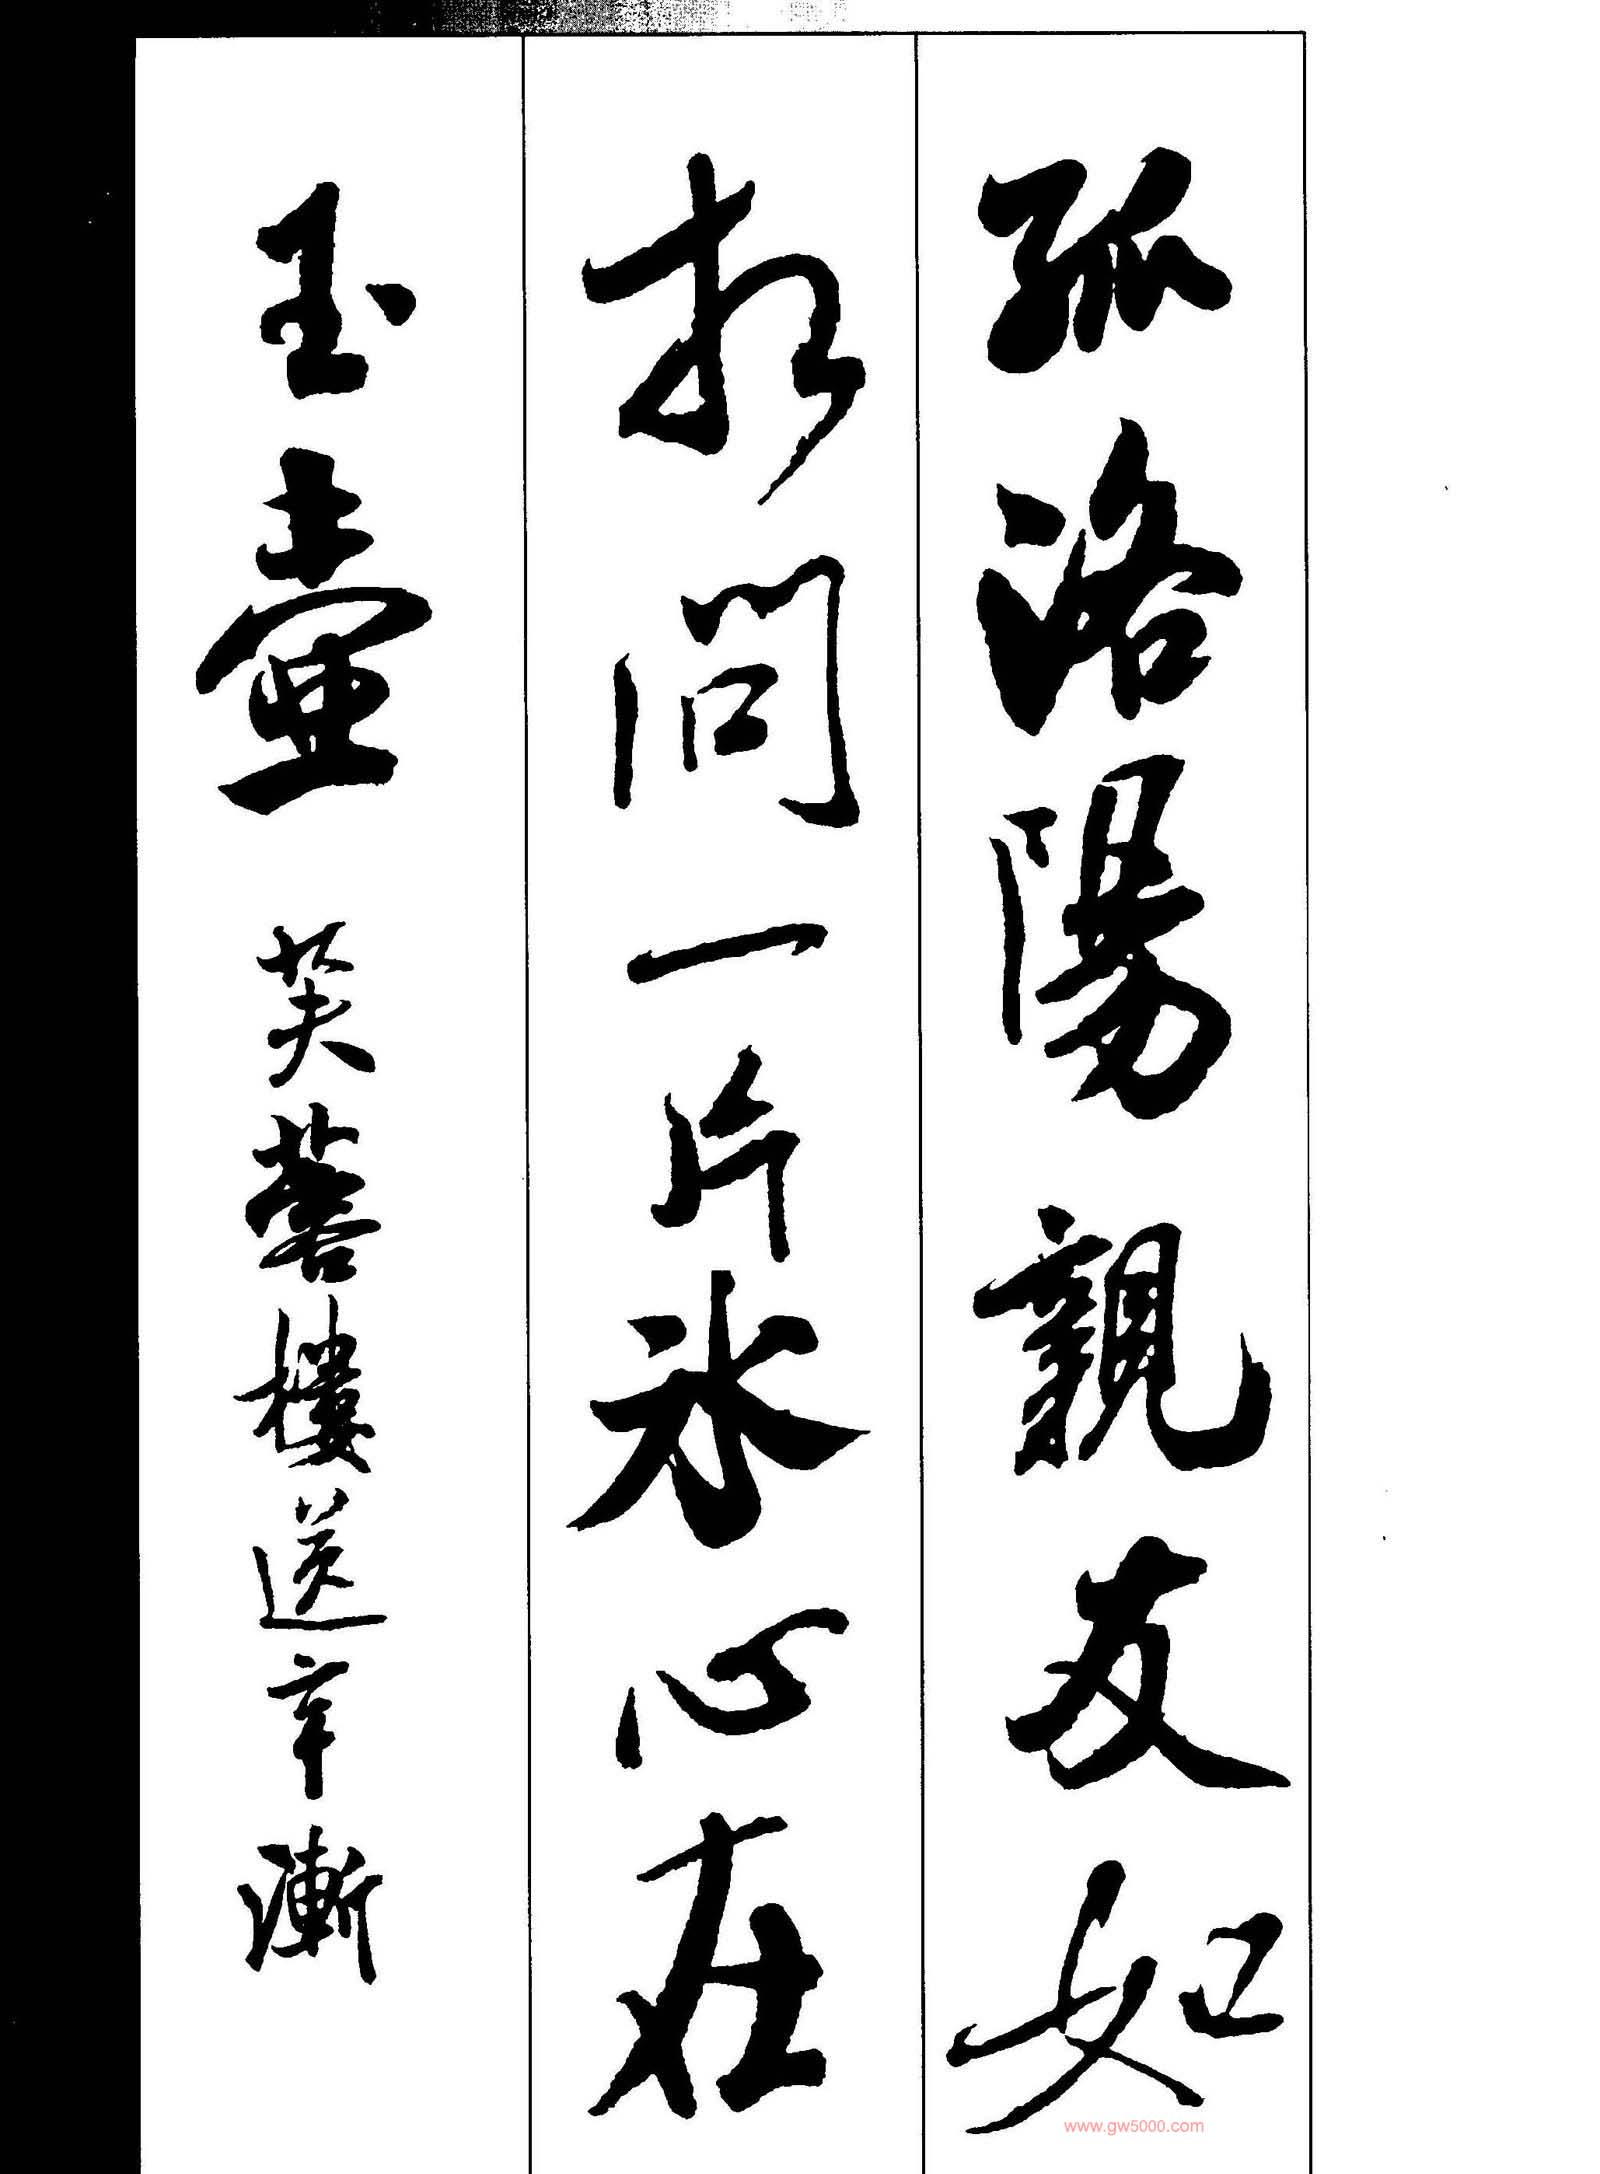 孤洛陽親友如
相問一片冰心在
玉壺 芙蓉樓送辛漸
www.gw5000.com